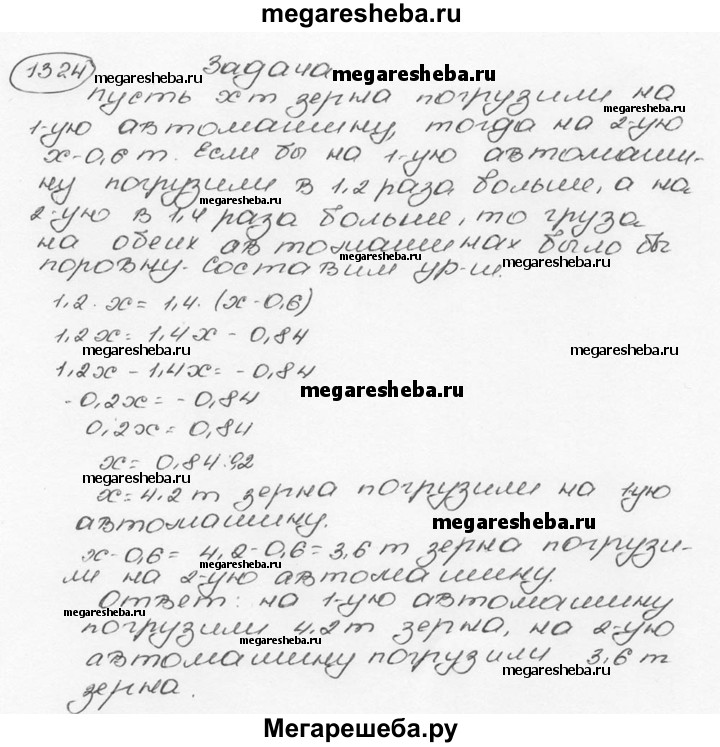 megaresheba.ru
1324 Задача
megaresheba.ru megaresheba.ru
пусть х т зерна погрузили на
megaresheba.ru
1-ую автомашину, тогда на 2-ую
х-0,6 т. Если бы на 1-ую автомаши-
megaresheba.ru
ну погрузили в 1,2 раза больше, а на
megaresheba.ru
2-ую в 1,4 раза больше, то груза
на обеих автомашинах было бы
поровну. Составим ур-ие.
megaresheba.ru
1,2 · х = 1,4 · (х-0,6)
1,2х = 1,4х - 0,84
megaresheba.ru megaresheba.ru
1,2х - 1,4х = -0,84
megaresheba.ru
-0,2х = -0,84
0,2х = 0,84
х = 0,84:0,2
megaresheba.ru
х = 4,2 т зерна погрузили на 1-ую
автомашину.
megaresheba.ru
х-0,6 = 4,2-0,6 = 3,6 т зерна погрузи-
ли на 2-ую автомашину.
Ответ: на 1-ую автомашину
megaresheba.ru
погрузили 4,2 т зерна, на 2-ую
megaresheba.ru
автомашину погрузили 3,6 т
megaresheba.ru
зерна.
Мегарешеба.ру